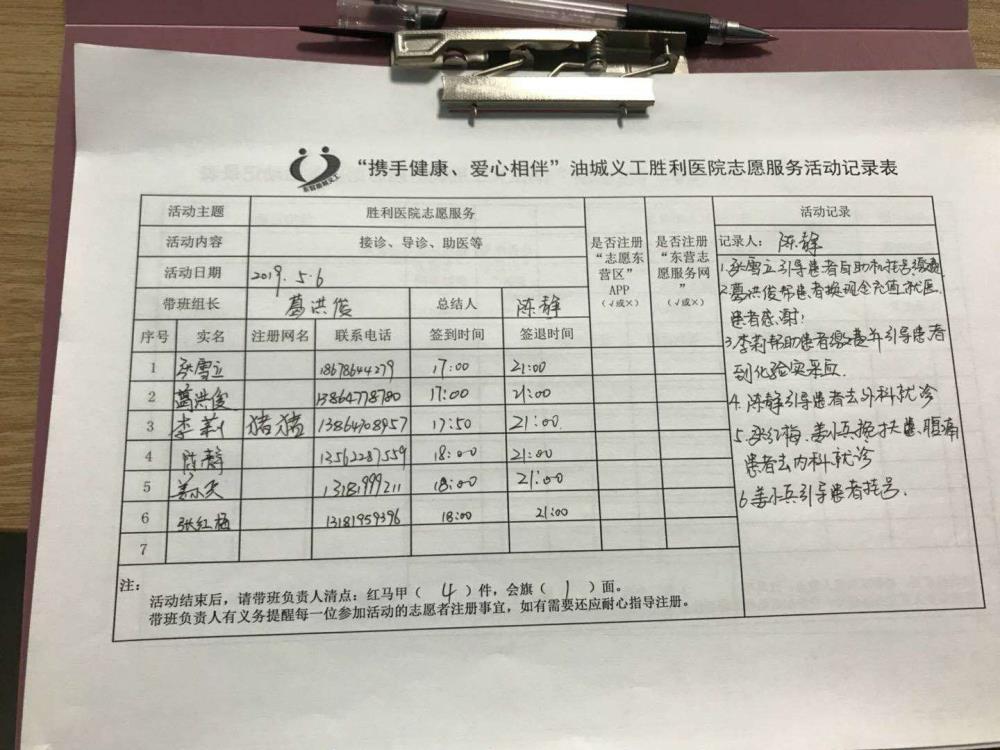 东营油城义工
“携手健康、爱心相伴”油城义工胜利医院志愿服务活动记录表
活动主题 胜利医院志愿服务 是否注册“志愿东营区”APP（√或×） 是否注册“东营志愿服务网”（√或×） 活动记录
活动内容 接诊、导诊、助医等
活动日期 2019.5.6
带班组长 葛洪俊 总结人 陈静
序号 实名 注册网名 联系电话 签到时间 签退时间
1 张雪立 18678644279 17:00 21:00
2 葛洪俊 13864778780 17:00 21:00
3 李莉 猪猪 13864708957 17:50 21:00
4 陈静 13562287559 18:00 21:00
5 13181999211 18:00 21:00
6 张红梅 13181959396 18:00 21:00
7
记录人：陈静
1.张雪立引导患者自助机挂号缴费
2.葛洪俊帮患者换现金充值就医.
患者感谢!
3.李莉帮助患者缴费并引导患者
到化验室采血.
4.陈静引导患者去外科就诊
5.张红梅、姜小兵搀扶患腹痛
患者去内科就诊
6.姜小兵引导患者挂号.
注：
活动结束后，请带班负责人清点：红马甲（ 4 ）件，会旗（ 1 ）面。
带班负责人有义务提醒每一位参加活动的志愿者注册事宜，如有需要还应耐心指导注册。